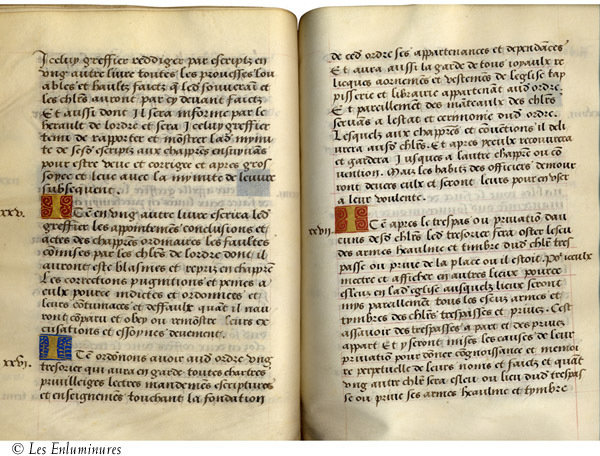 Icelluy greffier reddiger par escriptz en
vng autre liure toutes les prouesses lou
ables et haultz faictz q̃ led̃ souuerain et
les chl̃rs auront par cy deuant faictz
Et aussi dont il sera informe par le
herault de lordre et sera Icelluy greffier
tenu de raporter et mõstrer lad̃ mynu
te de sesd̃ escriptz aux chappr̃es ensuiuãs
pour estre veue et corrigee et apres gros
soyee et leue auec la mynute de leuure
subsequent.
xxv. ITẽ en vng autre liure escrira led̃
greffier les appointemẽs conclusions et
actes des chappr̃es ordinaires les faultes
cõmises par les chl̃rs de lordre dont il
auront este blasmes et repris en chappr̃e
Les corrections pugnitions et peines a
eulx pource indictes et ordonnees et
leurs cõtumaces et deffaulx quãt il nau
ront cõparu et obey ou remõstre leurs ex
cusations et essoynes deuement.
xxvi. ITẽ ordõnons auoir aud̃ ordre vng
tresorier qui aura en garde toutes chartres
priuilleiges lectres mandemẽs escriptures
et enseignemẽs touchant la fondation
de ced̃ ordre ses appartenances et dependãces
Et aura aussi la garde de tous ioyaulx re
licques aornemẽs et vestemẽs de leglise tap
pisserie et librairie appartenãt aud̃ ordre.
Et pareillement des manteaulx des chl̃rs
seruãs a lestat et cerimonie dud̃ ordre.
Lesquelz aux chappr̃es et cõuẽtions il deli
urera ausd̃ chl̃rs. Et apres yceulx recouurera
et gardera Iusques a lautre chappr̃e ou cõ
uention. Mais les habits des officiers demour
ront deuers eulx et seront leurs pour en vser
a leur voulente.
xxvii. ITẽ apres le trespas ou priuatiõ dau
cuns desd̃ chl̃rs led̃ tresorier fera oster lescu
des armes heaulme et timbre dud̃ chl̃r tres
passe ou priue de la place ou il estoit. Po᷑ iceulx
mectre et afficher en autres lieux pource
esleuz en lad̃ eglise ausquelz lieux seront
mys pareillement tous les escuz armes et
tymbres des chl̃rs trespasses et priuez. Cest
assauoir des trespasses a part et des priuez
appart Et y seront mises les causes de leur
priuatiõ pour dõner cognoissance et memoi
re perpetuelle de leurs noms et faictz et quãt
vng autre chl̃r sera esleu ou lieu dud̃ trespas
se ou priue ses armes heaulme et tymbre
© Les Enluminures